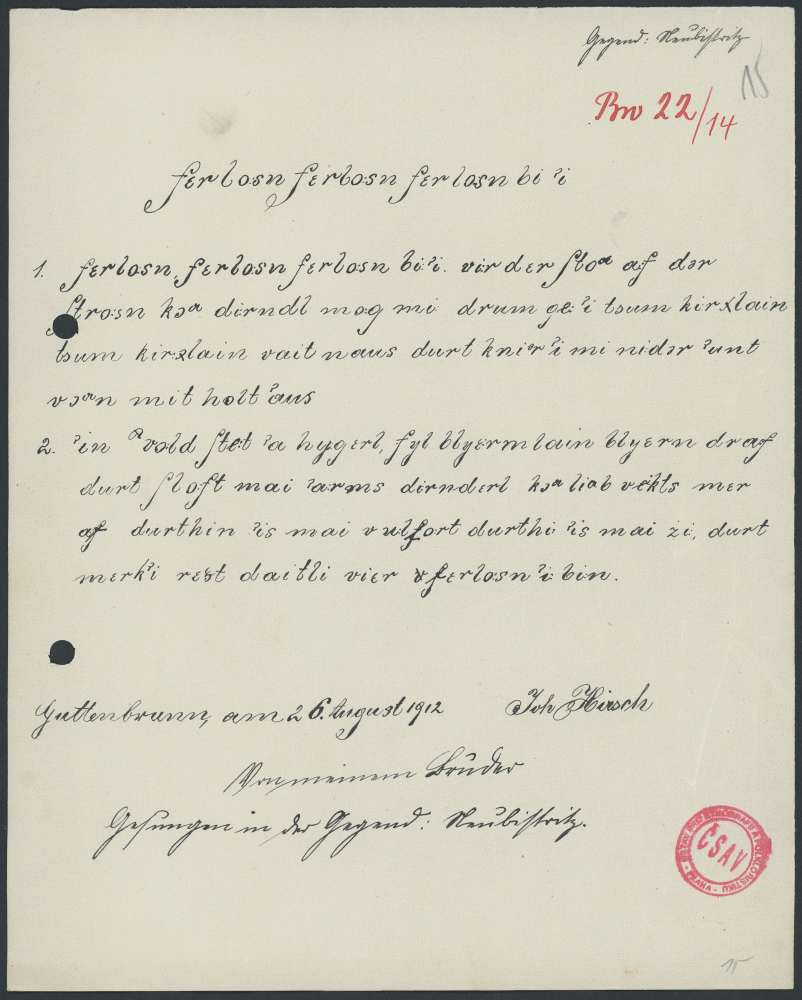 Gegend: Neubistritz
15
Bw 22/14
ferlosn ferlosn ferlosn bi ʾi
1. ferlosn, ferlosn ferlosn bi:ʾi. vir der ſtoᵃ af dər
ſtrosn kɔᵃ dirndl mog mi drum ge:ʾi tsum kirχlain
tsum kirχlain vait naus durt kniᵉrʾi mi nidər ʾunt
vɔᵃn mit holt ʾaus
2. ʾin vald ſtet ʾa hygerl, fyl blyermlain blyern draf
durt ſloft mai ʾarms dirnderl kɔᵃ liab vekts mer
af durthin ʾis mai vulfort durthi ʾis mai zi, durt
merkʾi rest daitli vier ferlosn ʾi bin.
Guttenbrunn, am 26. August 1912 Joh Hirsch
Von meinem Bruder
Gesungen in der Gegend: Neubistritz.
ČSAV
15